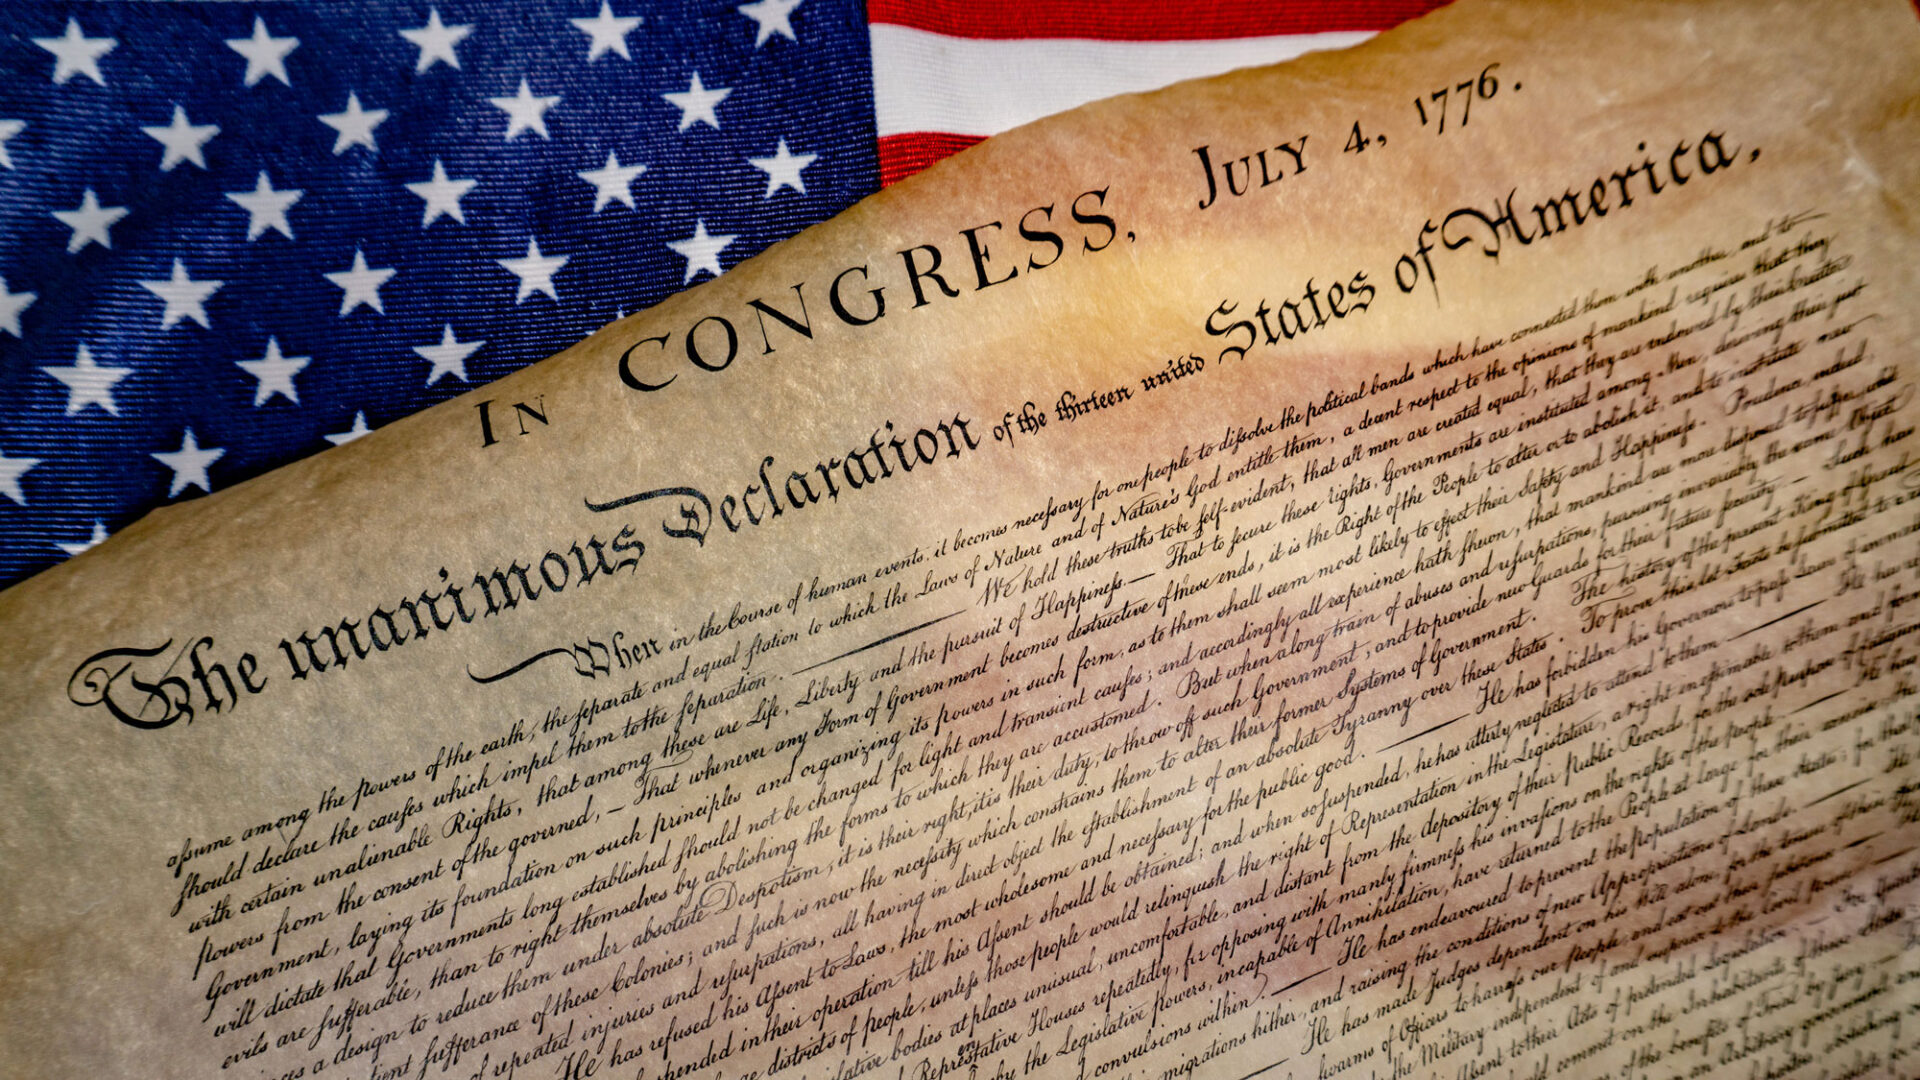 In CONGRESS, July 4, 1776.
The unanimous Declaration of the thirteen united States of America.
When in the Course of human events, it becomes necessary for one people to dissolve the political bands which have connected them with another, and to
assume among the powers of the earth, the separate and equal station to which the Laws of Nature and of Nature's God entitle them, a decent respect to the opinions of mankind requires that they
should declare the causes which impel them to the separation. — We hold these truths to be self-evident, that all men are created equal, that they are endowed by their Creator
with certain unalienable Rights, that among these are Life, Liberty and the pursuit of Happiness. — That to secure these rights, Governments are instituted among Men, deriving their just
powers from the consent of the governed, — That whenever any Form of Government becomes destructive of these ends, it is the Right of the People to alter or to abolish it, and to institute new
Government, laying its foundation on such principles and organizing its powers in such form, as to them shall seem most likely to effect their Safety and Happiness. Prudence, indeed,
will dictate that Governments long established should not be changed for light and transient causes; and accordingly all experience hath shewn, that mankind are more disposed to suffer, while
evils are sufferable, than to right themselves by abolishing the forms to which they are accustomed. But when a long train of abuses and usurpations, pursuing invariably the same Object
a design to reduce them under absolute Despotism, it is their right, it is their duty, to throw off such Government, and to provide new Guards for their future security. — Such has
sufferance of these Colonies; and such is now the necessity which constrains them to alter their former Systems of Government. The history of the present King of Great
of repeated injuries and usurpations, all having in direct object the establishment of an absolute Tyranny over these States. To prove this, let Facts be submitted to a
He has refused his Assent to Laws, the most wholesome and necessary for the public good. — He has forbidden his Governors to pass Laws of
in their operation till his Assent should be obtained; and when so suspended, he has utterly neglected to attend to them. — He has
districts of people, unless those people would relinquish the right of Representation in the Legislature, a right inestimable to them and
bodies at places unusual, uncomfortable, and distant from the depository of their public Records, for the sole purpose of
Representative Houses repeatedly, for opposing with manly firmness his invasions on the rights of the people. — He has
by the Legislative powers, incapable of Annihilation, have returned to the People at large for their exercise; the
convulsions within. — He has endeavoured to prevent the population of these States; for that
migrations hither, and raising the conditions of new Appropriations of Lands. — He
— He has made Judges dependent on his Will alone, for the tenure of their
swarms of Officers to harrass our people, and eat out their substance.
the Military independent of and superior to the Civil power.
Assent to their Acts of pretended Legislation: For
should commit on the Inhabitants of these States
of the benefits of Trial by jury
an Arbitrary government